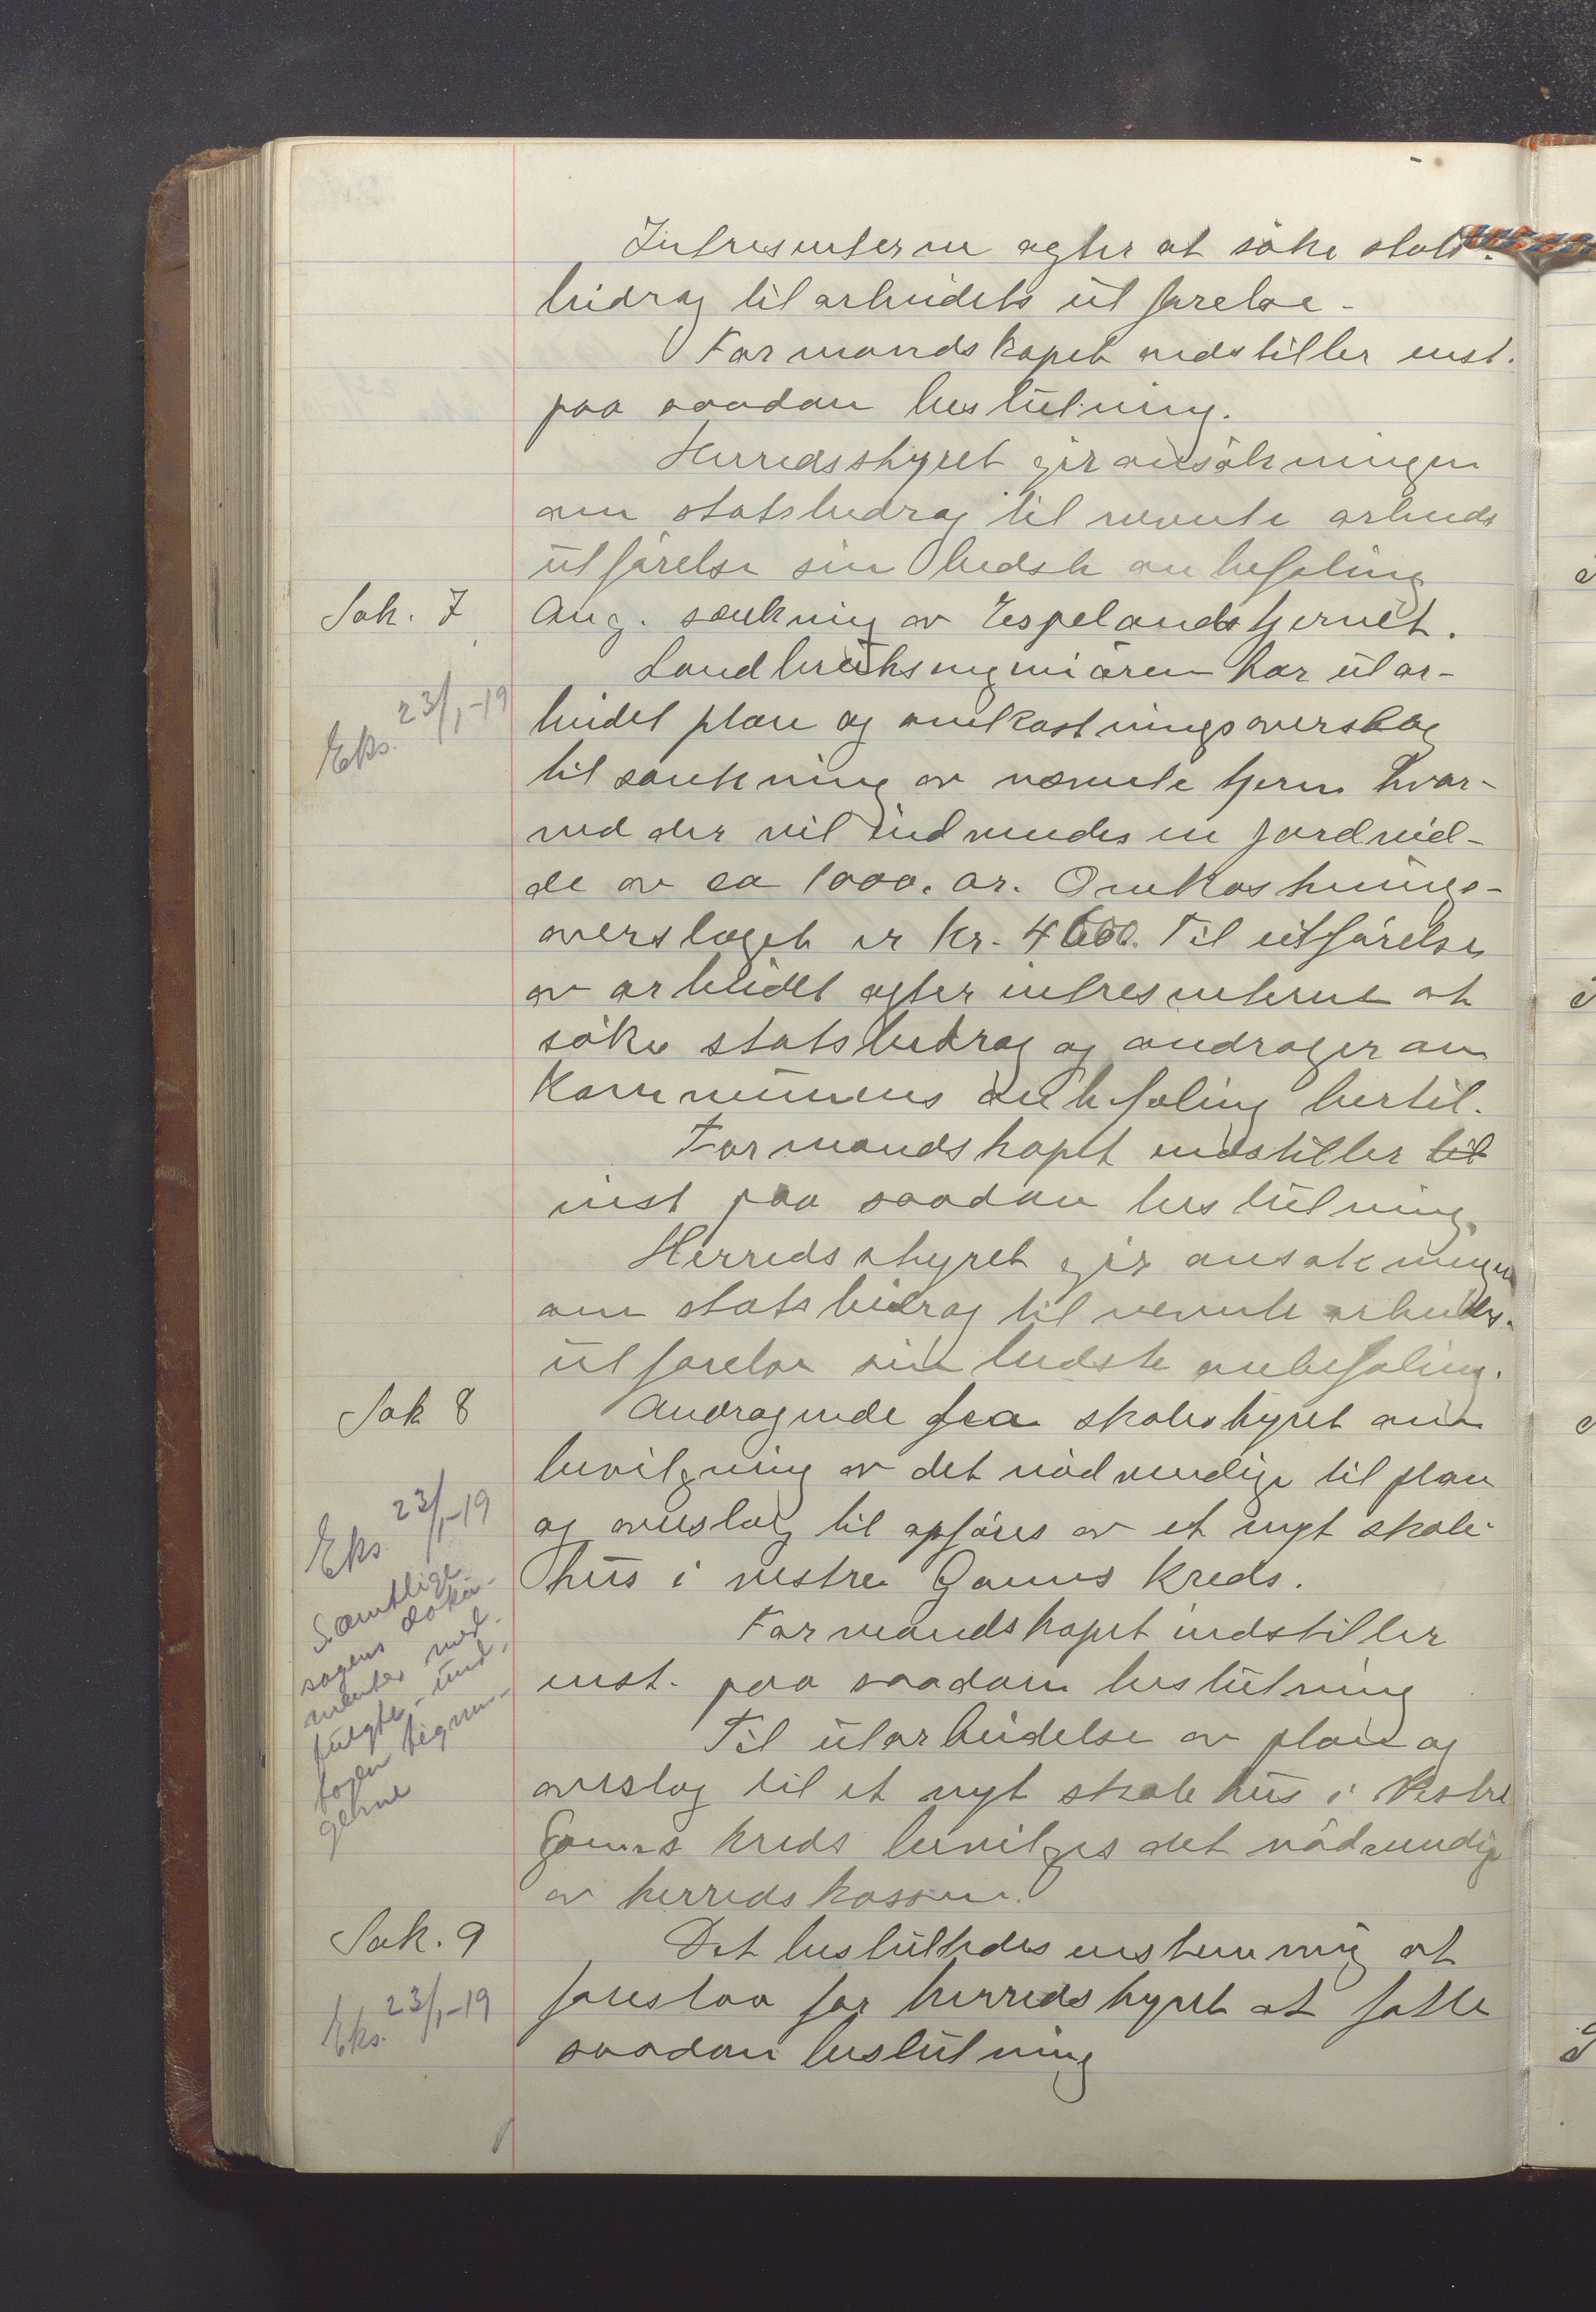 Intresenterne agter at søke stats-
bidrag til arbeidets utførelse.
Formandskapet indstiller enst.
paa saadan beslutning.
Herredsstyret gir ansøkningen
om statsbidrag til nevnte arbeids
utførelse sin bedste anbefaling
Sak. 7
Ang. sænkning av Espelandstjernet.
Landbruksingeniøren har utar-
Eks. 23/1-19
beidet plan og omkostningsoverslag
til sænkning av nævnte tjern hvor-
ved der vil indvindes en jordvid-
de av ca 1000. ar. Omkostnings-
overslaget er kr. 4600. Til utførelse
av arbeidet agter intresenterne at
søke statsbidrag og andrager om
kommunens anbefaling hertil.
Formandskapet indstiller til
enst paa saadan beslutning.
Herredsstyret gir ansøkningen
om statsbidrag til nevnte arbeids.
utførelse sin bedste anbefaling.
Sak 8
Andragende fra skolestyret om
bevilgning av det nødvendige til plan
og overslag til opføres av et nyt skole-
hus i vestre Gauns kreds.
Eks 23/1-19
Samtlige
sagens doku-
menter med-
fulgte, und-
tagen tegnin-
gerne
Formandskapet indstiller
enst. paa saadan beslutning
Til utarbeidelse av plan og
overslag til et nyt skolehus i Vestre
Gauns kreds bevilges det nødvendige
av herredskassen.
Sak. 9
Det besluttedes enstemmig at
Eks. 23/1-19
foreslaa for herredsstyret at fatte
saadan beslutning